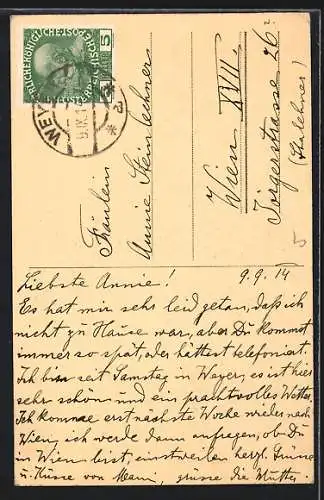 KAISERLICHE KÖNIGLICHE ÖSTERREICHISCHE POST
5
WEYER
9.IX.14
Fräulein
Annie Steinlechner
Wien XVIII.
Jörgerstrasse 26
5
Liebste Annie! 9.9.14
Es hat mir sehr leid getan, daß ich
nicht zu Hause war, aber Du kommst
immer so spät, oder hättest telefoniert.
Ich bin seit Samstag in Weyer, es ist hier
sehr schön und ein prachtvolles Wetter.
Ich komme erst nächste Woche wieder nach
Wien, ich werde dann anfragen, ob Du
in Wien bist, einstweilen herzl. Grüsse
u. Küsse von Mami, grüsse die Mutter.